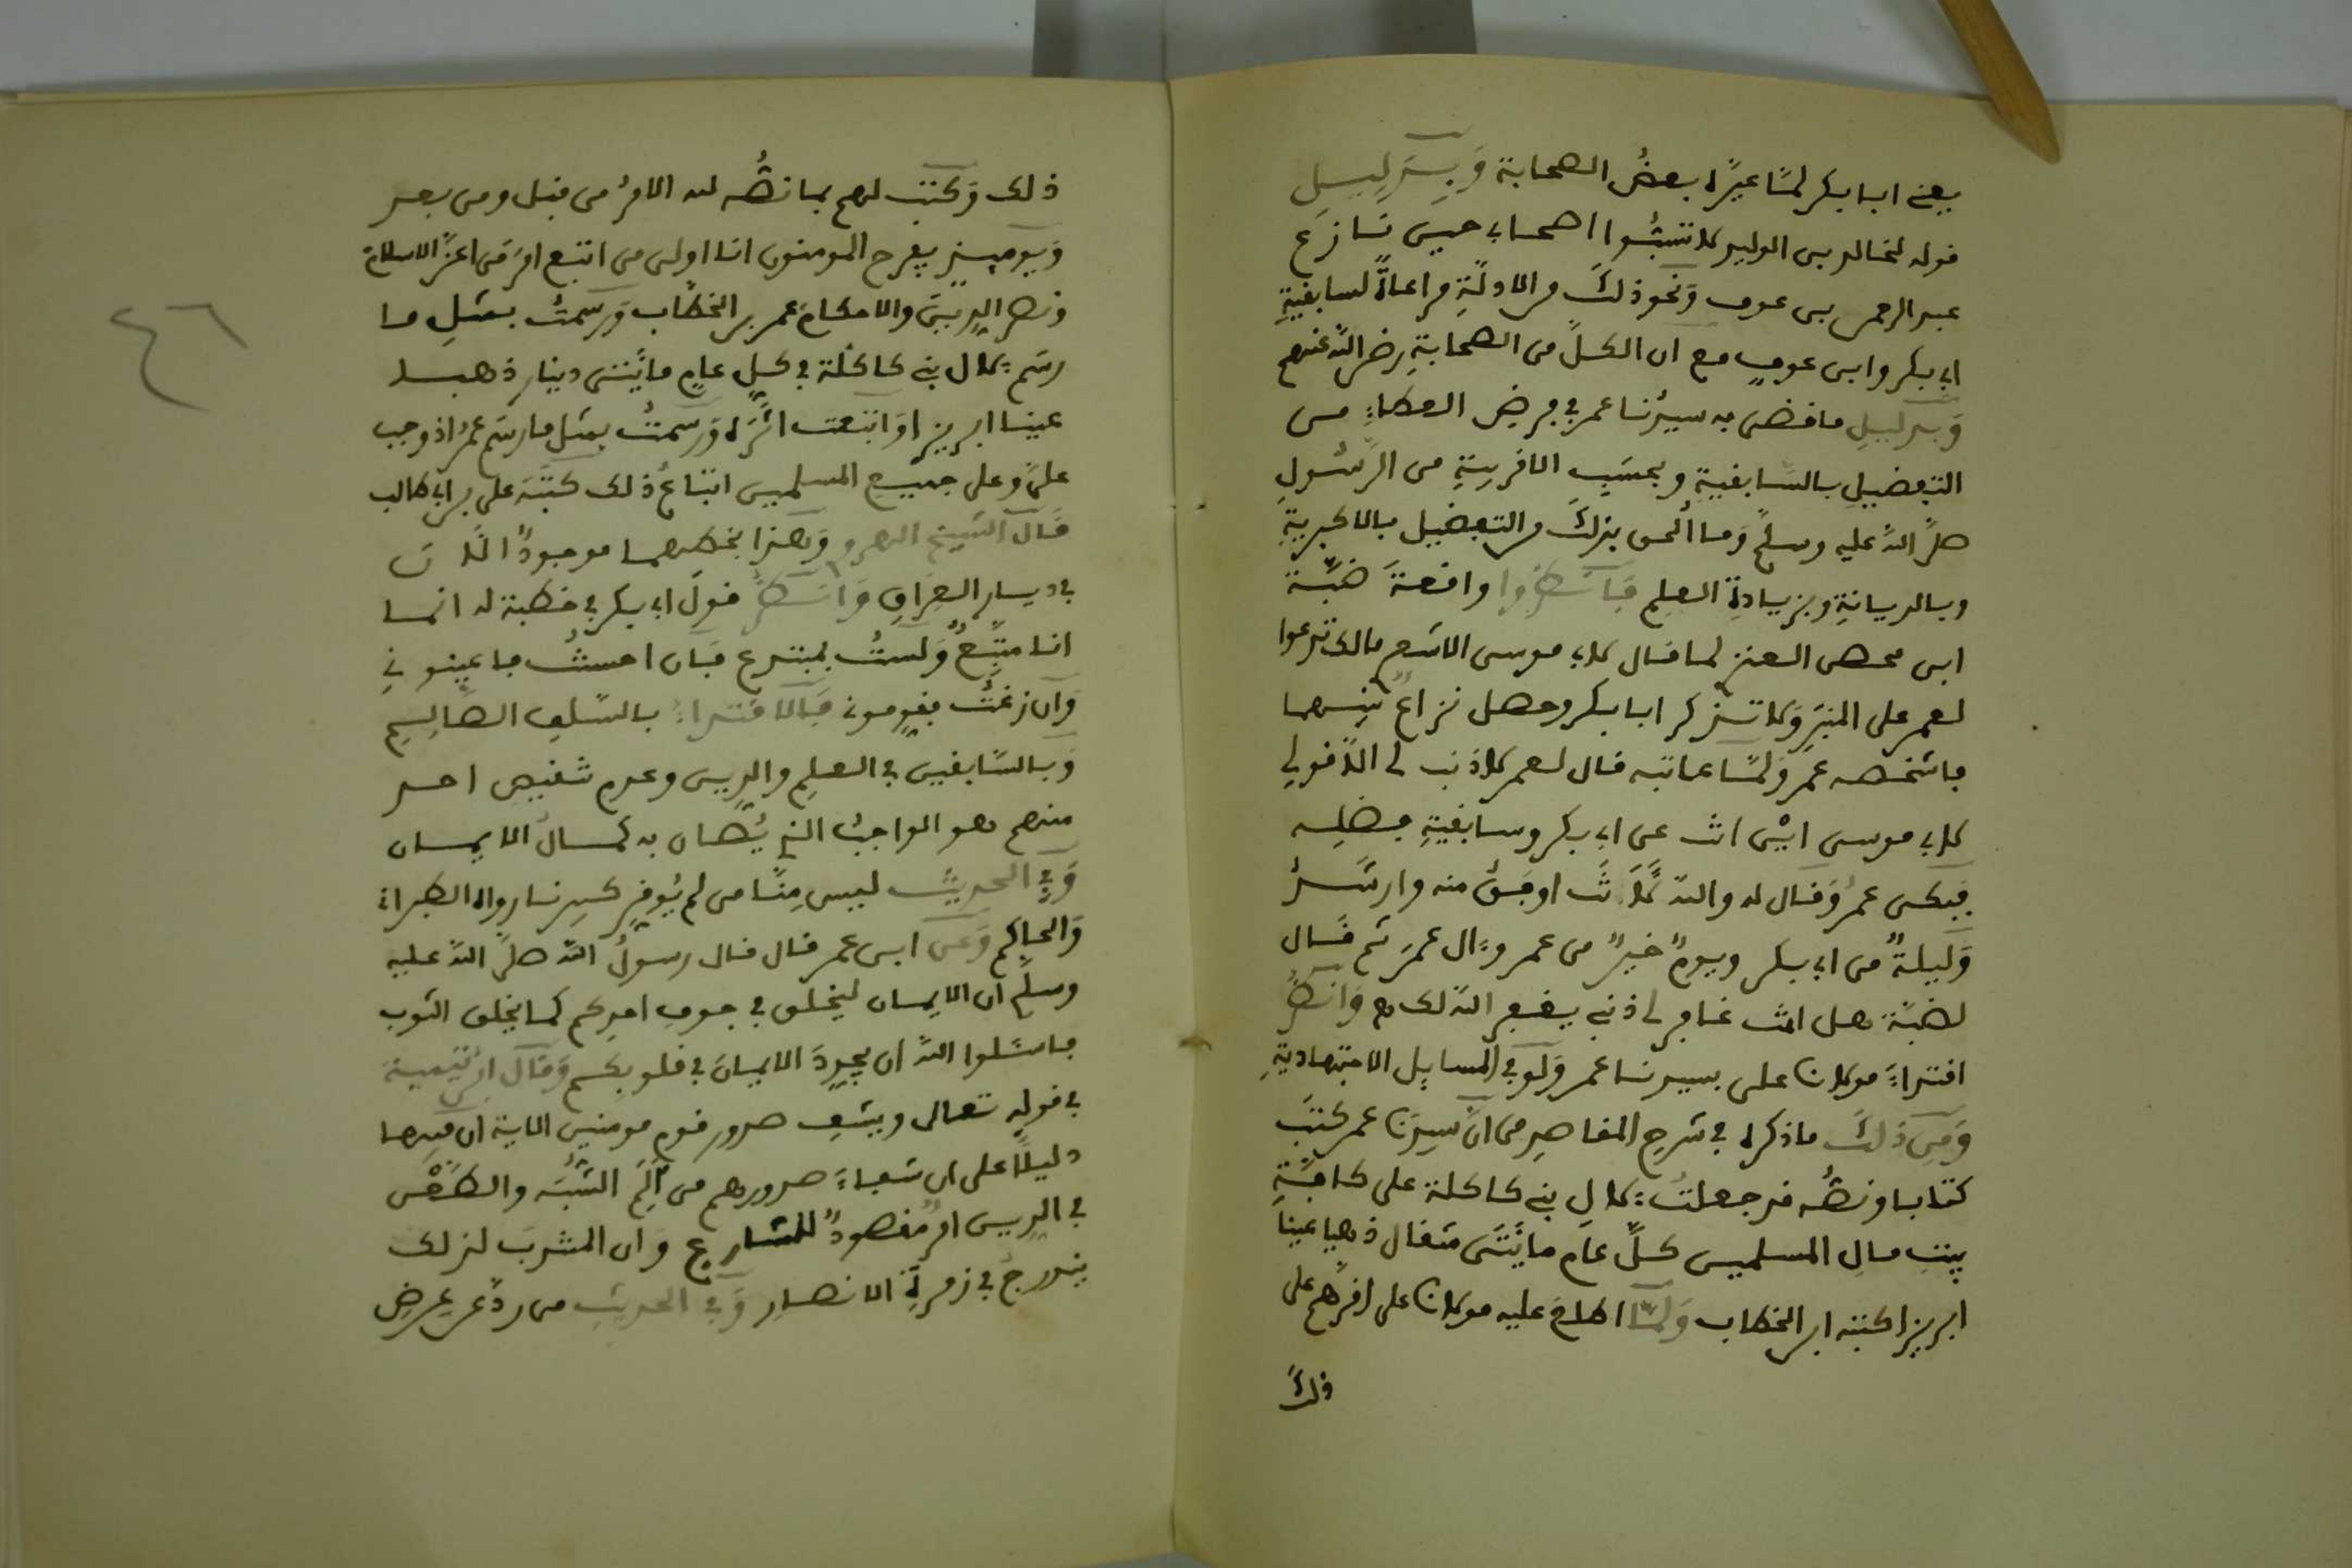 يعني ابا بكر لمّا عيّره بعضُ الصحابة وَبدليل
قوله لخالد بن الوليد لا تسُبّوا اصحابي حين تنازع
عبد الرحمن بن عوف وَنحو ذلكَ من الادلّةِ مراعاةً لسابقيةِ
ابي بكر وابن عوفٍ مع ان الكلَّ من الصحابةِ رضي اللّه عنهم
وَبدليلِ ما قضى به سيدُنا عمر في فرضِ العطاءِ من
التفضيلِ بالسّابقيةِ وبحسَبِ الاقربيةِ من الرّسُولِ
صلّى اللّه عليه وسلّم وَما اُلحق بذلكَ من التفضيل بالاكبريةِ
وبالديانةِ وبزيادةِ العلمِ فَانظروا واقعةَ ضبّة
ابن محصن العنزي لما قال لابي موسى الاشعري مالك تدعوا
لعمر على المنبرِ وَلا تذكر ابا بكر وحصل نزاعٌ بينهما
فاشخصه عمر وَلمّا عاتبه قال لعمر لا ذنب لي الّا قولي
لابي موسى اين انت عن ابي بكر وسابقيةِ فضلِه
فبكى عمرُ وَقال له واللّه لَأنتَ اوفقُ منه وارشدُ
وَليلةٌ من ابي بكر ويومٌ خيرٌ من عمر وءال عمرَ ثم قال
لضبّة هل انت غافر لي ذنبي يغفر اللّه لك وَانظر
اقتداءَ مولانا علي بسيدنا عمر وَلو في المسايل الاجتهاديةِ
وَمِن ذلكَ ما ذكره في شرح المقاصدِ من انّ سيدَنا عمر كتبَ
كتابا ونصُّه قد جعلتُ لال بني كاكلة على كافّةِ
بيتِ مال المسلمين كلَّ عام مائتَي مثقال ذهبا عينا
ابريزا كتبه ابن الخطاب وَلمّا اطلع عليه مولانا علي اقرّهم على
ذلكَ
ذلك وَكتب لهم بما نصُّه لله الامرُ من قبل ومن بعد
وَيوميذٍ يفرح المومنون انا اولى من اتبع امرَ من اعزّ الاسلامَ
ونصر الدينَ والاحكامَ عمر بن الخطّاب وَرسمتُ بمثلِ ما
رسَم لال بني كاكلة في كلِ عامٍ مائتى دينار ذهبا
عينا ابريزا وَاتبعت اثرَه وَرسمتُ بمثل ما رسَم عمرُ اذ وجب
عليّ وعلى جميع المسلمين اتباعُ ذلك كتبَه علي بن ابي طالب
قال الشيخ الهروي وَهذا بخطهما موجودٌ الآن
في ديار العراقِ وَانظرْ قولَ ابي بكر في خطبة له انما
انا متّبعٌ وَلستُ بمبتدع فان احسنتُ فاعينوني
وَان زغتُ فقوموني فالاقتداءُ بالسّلفِ الصّالحِ
وَبالسّابقين في العلمِ والدين وعدمِ تنقيص احد
منهم هو الواجبُ الذي يُصان به كمالُ الايمان
وَفي الحديث ليس مِنّا من لم يُوقِر كبيرنا رواه الطبراني
وَالحاكم وَعن ابن عمر قال قال رسولُ اللّه صلّى اللّه عليه
وسلّم ان الايمان ليخلق في جوفِ احدكم كما يخلق الثوب
فاسئلوا اللّه ان يجدِدَ الايمانَ في قلوبكم وَقال ابن تيمية
في قوله تعالى ويشفِ صدور قوم مومنين الاية ان فيها
دليلًا على ان شفاءَ صدورهم من اَلَمِ الشُّبَه والطّعْن
في الدين امرٌ مقصودٌ للشارع وَان المتدبَ لذلك
يندرجُ في زمرةِ الانصارِ وَفي الحديث من ردّ عن عرضِ
٤٦